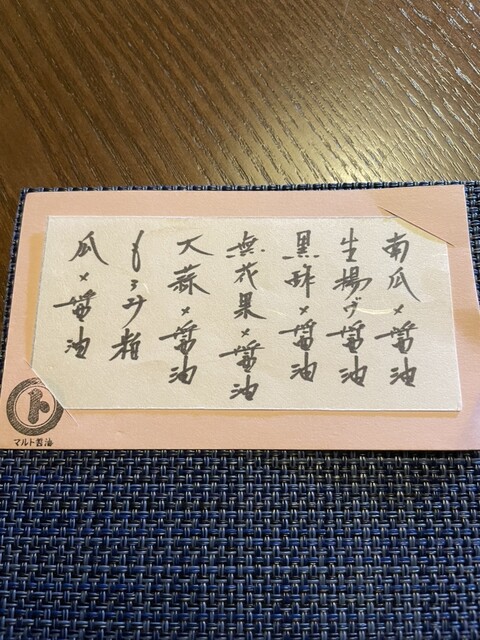 南瓜×醤油
生揚げ醤油
黒酢×醤油
無花果×醤油
大蒜×醤油
もろみ粕
瓜×醤油
ト
マルト醤油